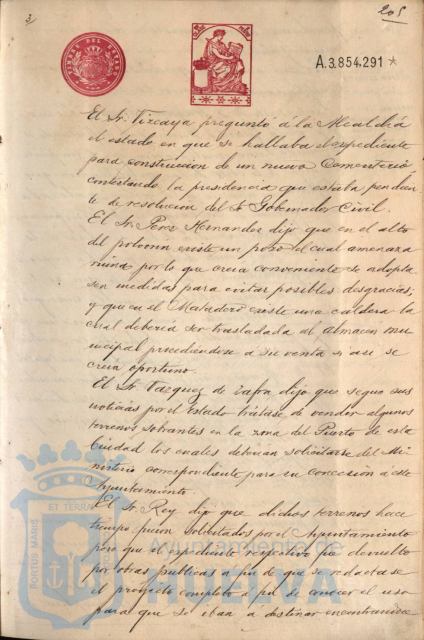 3)
205
TIMBRE DEL ESTADO
A.3.854.291*
El Sr Vizcaya preguntó á la Alcaldia
el estado en que se hallaba el expediente
para construccion de un nuevo Cementerio
contestando la presidencia que estaba pendien
te de resolucion del Sr Gobernador Civil.
El Sr Perez Hernandez dijo que en el alto
del polvorin existe un pozo el cual amenaza
ruina por lo que creia conveniente se adopta
sen medidas para evitar posibles desgracias;
y que en el Matadero existe una caldera la
cual deberia ser trasladada al almacen mu
nicipal procediendose a su venta si asi se
creia oportuno.
El Sr Vazquez de Zafra dijo que segun sus
noticias por el Estado tratase de vender algunos
terrenos sobrantes en la zona del Puerto de esta
Ciudad los cuales debian solicitarse del Mi
nisterio correspondiente para su concesion á este
Ayuntamiento
El Sr Rey dijo que dichos terrenos hace
tiempo fueron solicitados por el Ayuntamiento
pero que el expediente respectivo fue devuelto
por obras publicas a fin de que se redactase
el proyecto completo a fin de conocer el uso
para que se iban á destinar encontrandose
PORTUS MARIS ET TERRAE
Ayuntamiento de
HUELVA